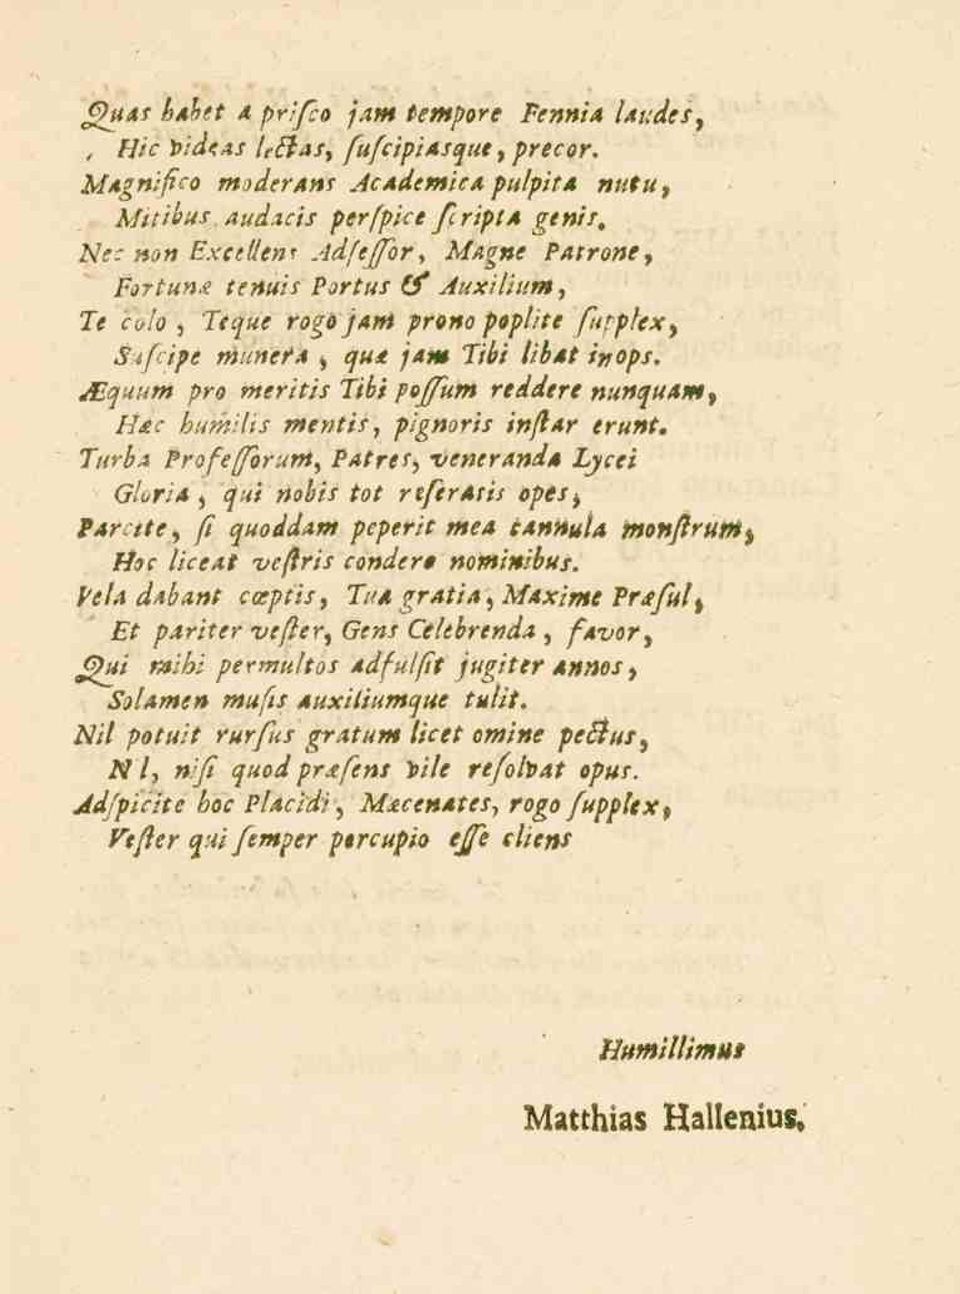 Quas habet a priſco jam tempore Fennia laudes,
Hic videas lectas, ſuſcipiasque, precor.
Magnifico moderans Academica pulpita nutu,
Mitibus audacis perſpice ſcripta genis.
Nec non Excellens Adſeſſor, Magne Patrone,
Fortunæ tenuis Portus & Auxilium,
Te colo, Teque rogo jam prono poplite ſupplex,
Suſcipe munera, quæ jam Tibi libat inops.
Æquum pro meritis Tibi poſſum reddere nunquam,
Hæc humilis mentis, pignoris inſtar erunt.
Turba Profeſſorum, Patres, veneranda Lycei
Gloria, qui nobis tot reſeratis opes,
Parcite, ſi quoddam peperit mea cannula monſtrum,
Hoc liceat veſtris condere nominibus.
Vela dabant cœptis, Tua gratia, Maxime Præſul,
Et pariter veſter, Gens Celebrenda, favor,
Qui mihi permultos adfulſit jugiter annos,
Solamen muſis auxiliumque tulit.
Nil potuit rurſus gratum licet omine pectus,
N l, niſi quod præſens vile reſolvat opus.
Adſpicite hoc Placidi, Mæcenates, rogo ſupplex,
Veſter qui ſemper percupio eſſe cliens
Humillimus
Matthias Hallenius.